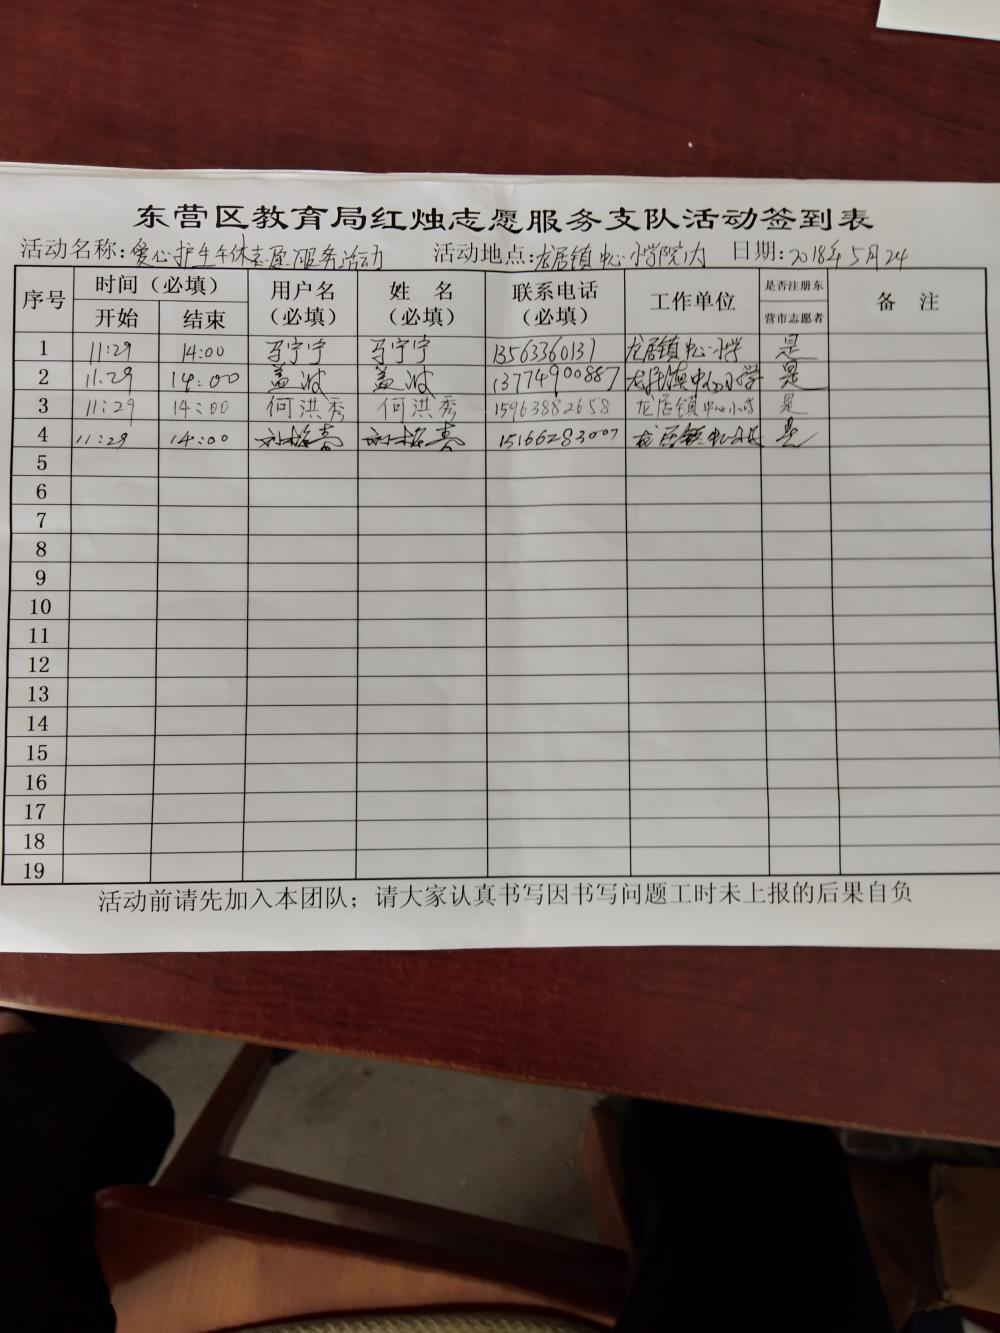 东营区教育局红烛志愿服务支队活动签到表
活动名称:爱心护生午休志愿服务活动 活动地点:龙居镇中心小学院内 日期:2018年5月24
序号 时间（必填） 用户名（必填） 姓 名（必填） 联系电话（必填） 工作单位 是否注册东营市志愿者 备 注
开始 结束
1 11:29 14:00 马宁宁 马宁宁 13563360137 龙居镇中心小学 是
2 11.29 14:00 盖波 盖波 13774900887 龙居镇中心小学 是
3 11:29 14:00 何洪秀 何洪秀 15963882658 龙居镇中心小学 是
4 11:29 14:00 15166283007 龙居镇中心小学 是
5
6
7
8
9
10
11
12
13
14
15
16
17
18
19
活动前请先加入本团队；请大家认真书写因书写问题工时未上报的后果自负